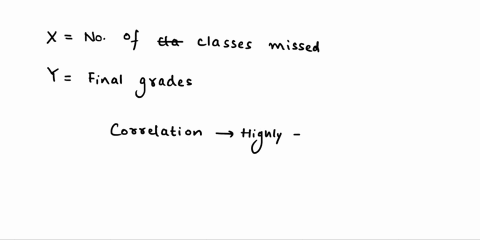 X = No. of cla classes missed
Y = Final grades
Correlation → Highly -